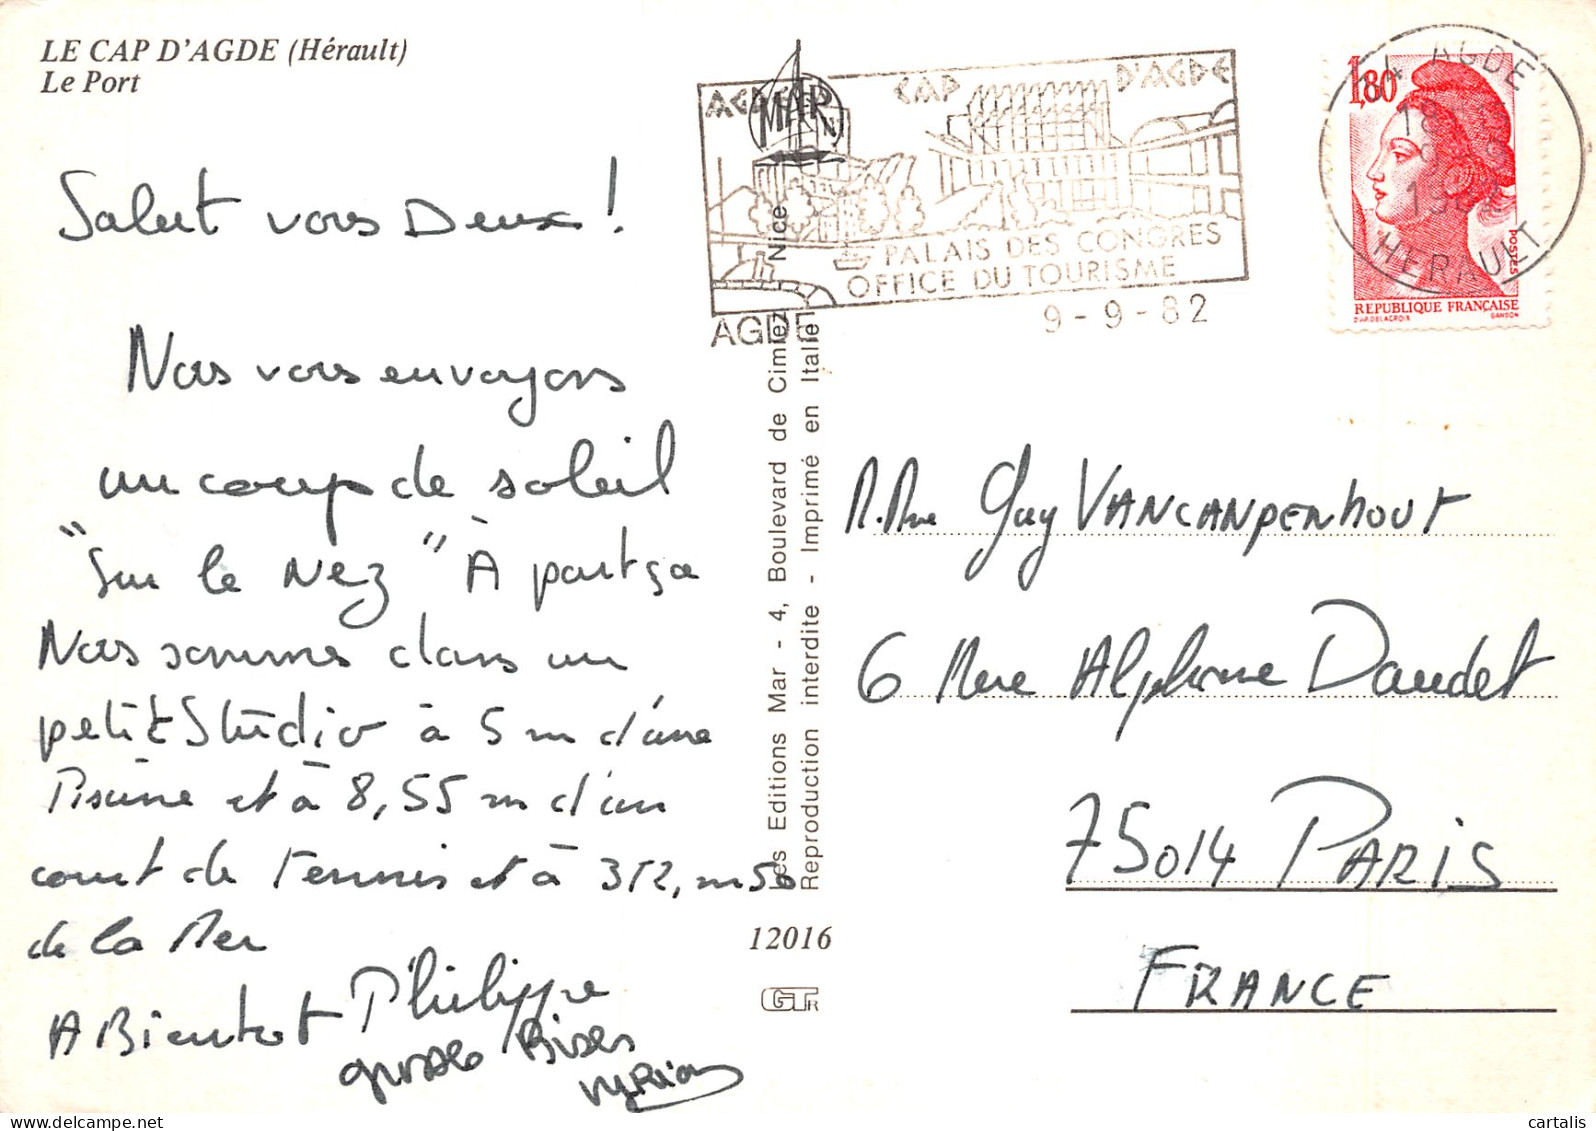 LE CAP D'AGDE (Hérault)
Le Port
Salut vous Deux !
Nous vous envoyons
un coup de soleil
"Sur le Nez" À part ça
Nous sommes dans un
petit Studio à 5 m d'une
Piscine et à 8,55 m d'un
court de Tennis et à 312,m50
de la Mer
A Bientot Philippe
grosses Bises
Myriam
AGDE CAP D'AGDE
MAR
PALAIS DES CONGRES
OFFICE DU TOURISME
AGDE 9-9-82
Les Editions Mar - 4, Boulevard de Cimiez - Nice
Reproduction interdite - Imprimé en Italie
12016
GTR
1,80
POSTES
REPUBLIQUE FRANÇAISE
D'AP. DELACROIX GANDON
34 AGDE
18 H
9-9
1982
HERAULT
M. Mme Guy VANCANPENHOUT
6 Rue Alphonse Daudet
75014 PARIS
FRANCE
cartalis